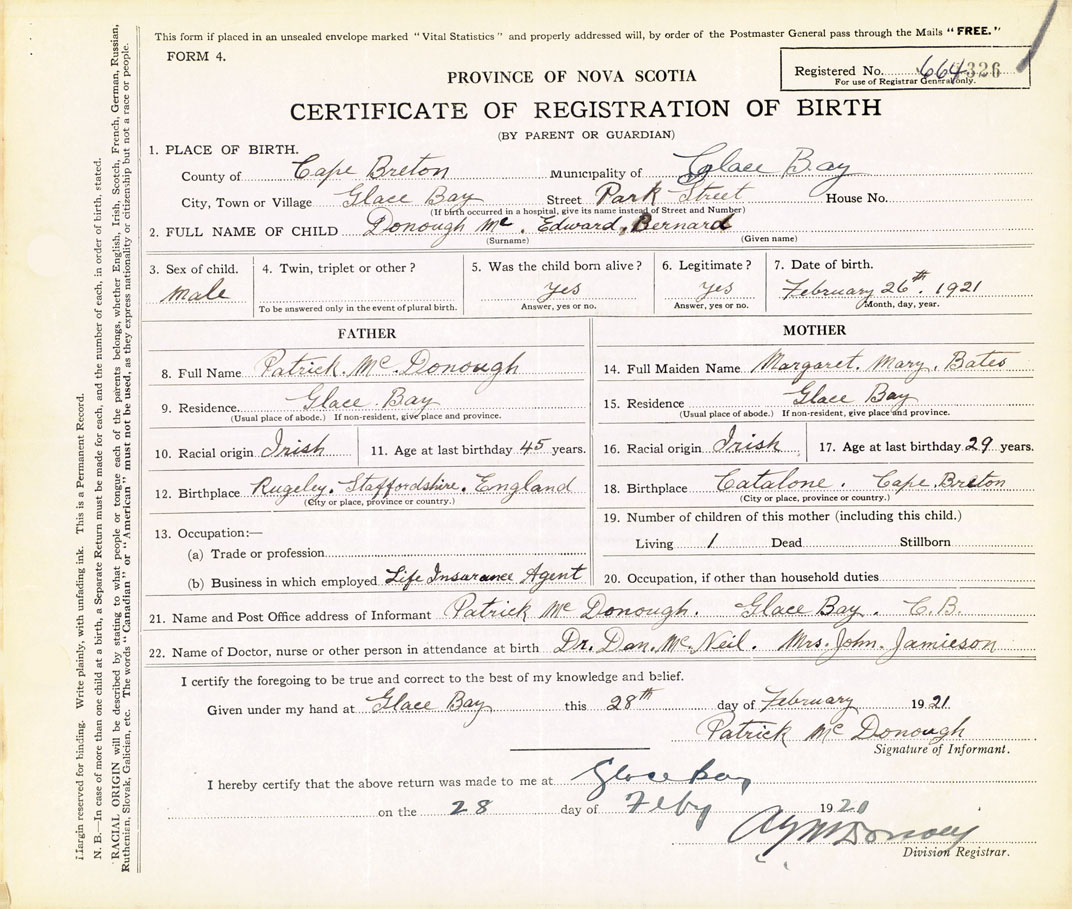 This form if placed in an unsealed envelope marked "Vital Statistics" and properly addressed will, by order of the Postmaster General pass through the Mails "FREE."
FORM 4.
Registered No. 664 326
For use of Registrar General only.
PROVINCE OF NOVA SCOTIA
CERTIFICATE OF REGISTRATION OF BIRTH
(BY PARENT OR GUARDIAN)
1. PLACE OF BIRTH.
County of Cape Breton Municipality of Glace Bay
City, Town or Village Glace Bay Street Park Street House No.
(If birth occurred in a hospital, give its name instead of Street and Number)
2. FULL NAME OF CHILD Donough Mc. Edward, Bernard
(Surname) (Given name)
3. Sex of child. 4. Twin, triplet or other? 5. Was the child born alive? 6. Legitimate? 7. Date of birth.
Male yes yes February 26th. 1921
To be answered only in the event of plural birth. Answer, yes or no. Answer, yes or no. Month, day, year.
FATHER
8. Full Name Patrick. Mc. Donough
9. Residence. Glace Bay
(Usual place of abode.) If non-resident, give place and province.
10. Racial origin Irish 11. Age at last birthday 45 years.
12. Birthplace Rugeley. Staffordshire. England
(City or place, province or country.)
13. Occupation:—
(a) Trade or profession
(b) Business in which employed Life Insurance Agent
MOTHER
14. Full Maiden Name Margaret. Mary. Bates
15. Residence Glace Bay
(Usual place of abode.) If non-resident, give place and province.
16. Racial origin Irish 17. Age at last birthday 29 years.
18. Birthplace Catalone. Cape Breton
(City or place, province or country.)
19. Number of children of this mother (including this child.)
Living 1 Dead Stillborn
20. Occupation, if other than household duties
21. Name and Post Office address of Informant Patrick Mc Donough. Glace Bay. C.B.
22. Name of Doctor, nurse or other person in attendance at birth Dr. Dan. Mc. Neil. Mrs. John. Jamieson
I certify the foregoing to be true and correct to the best of my knowledge and belief.
Given under my hand at Glace Bay this 28th day of February 1921
Patrick Mc Donough
Signature of Informant.
I hereby certify that the above return was made to me at Glace Bay
on the 28 day of Feby 1920
Division Registrar.
Margin reserved for binding. Write plainly, with unfading ink. This is a Permanent Record.
N. B.—In case of more than one child at a birth, a Separate Return must be made for each, and the number of each, in order of birth, stated.
RACIAL ORIGIN will be described by stating to what people or tongue each of the parents belongs, whether English, Irish, Scotch, French, German, Russian,
Ruthenian, Slovak, Galician, etc. The words "Canadian" or "American" must not be used, as they express nationality or citizenship but not a race or people.